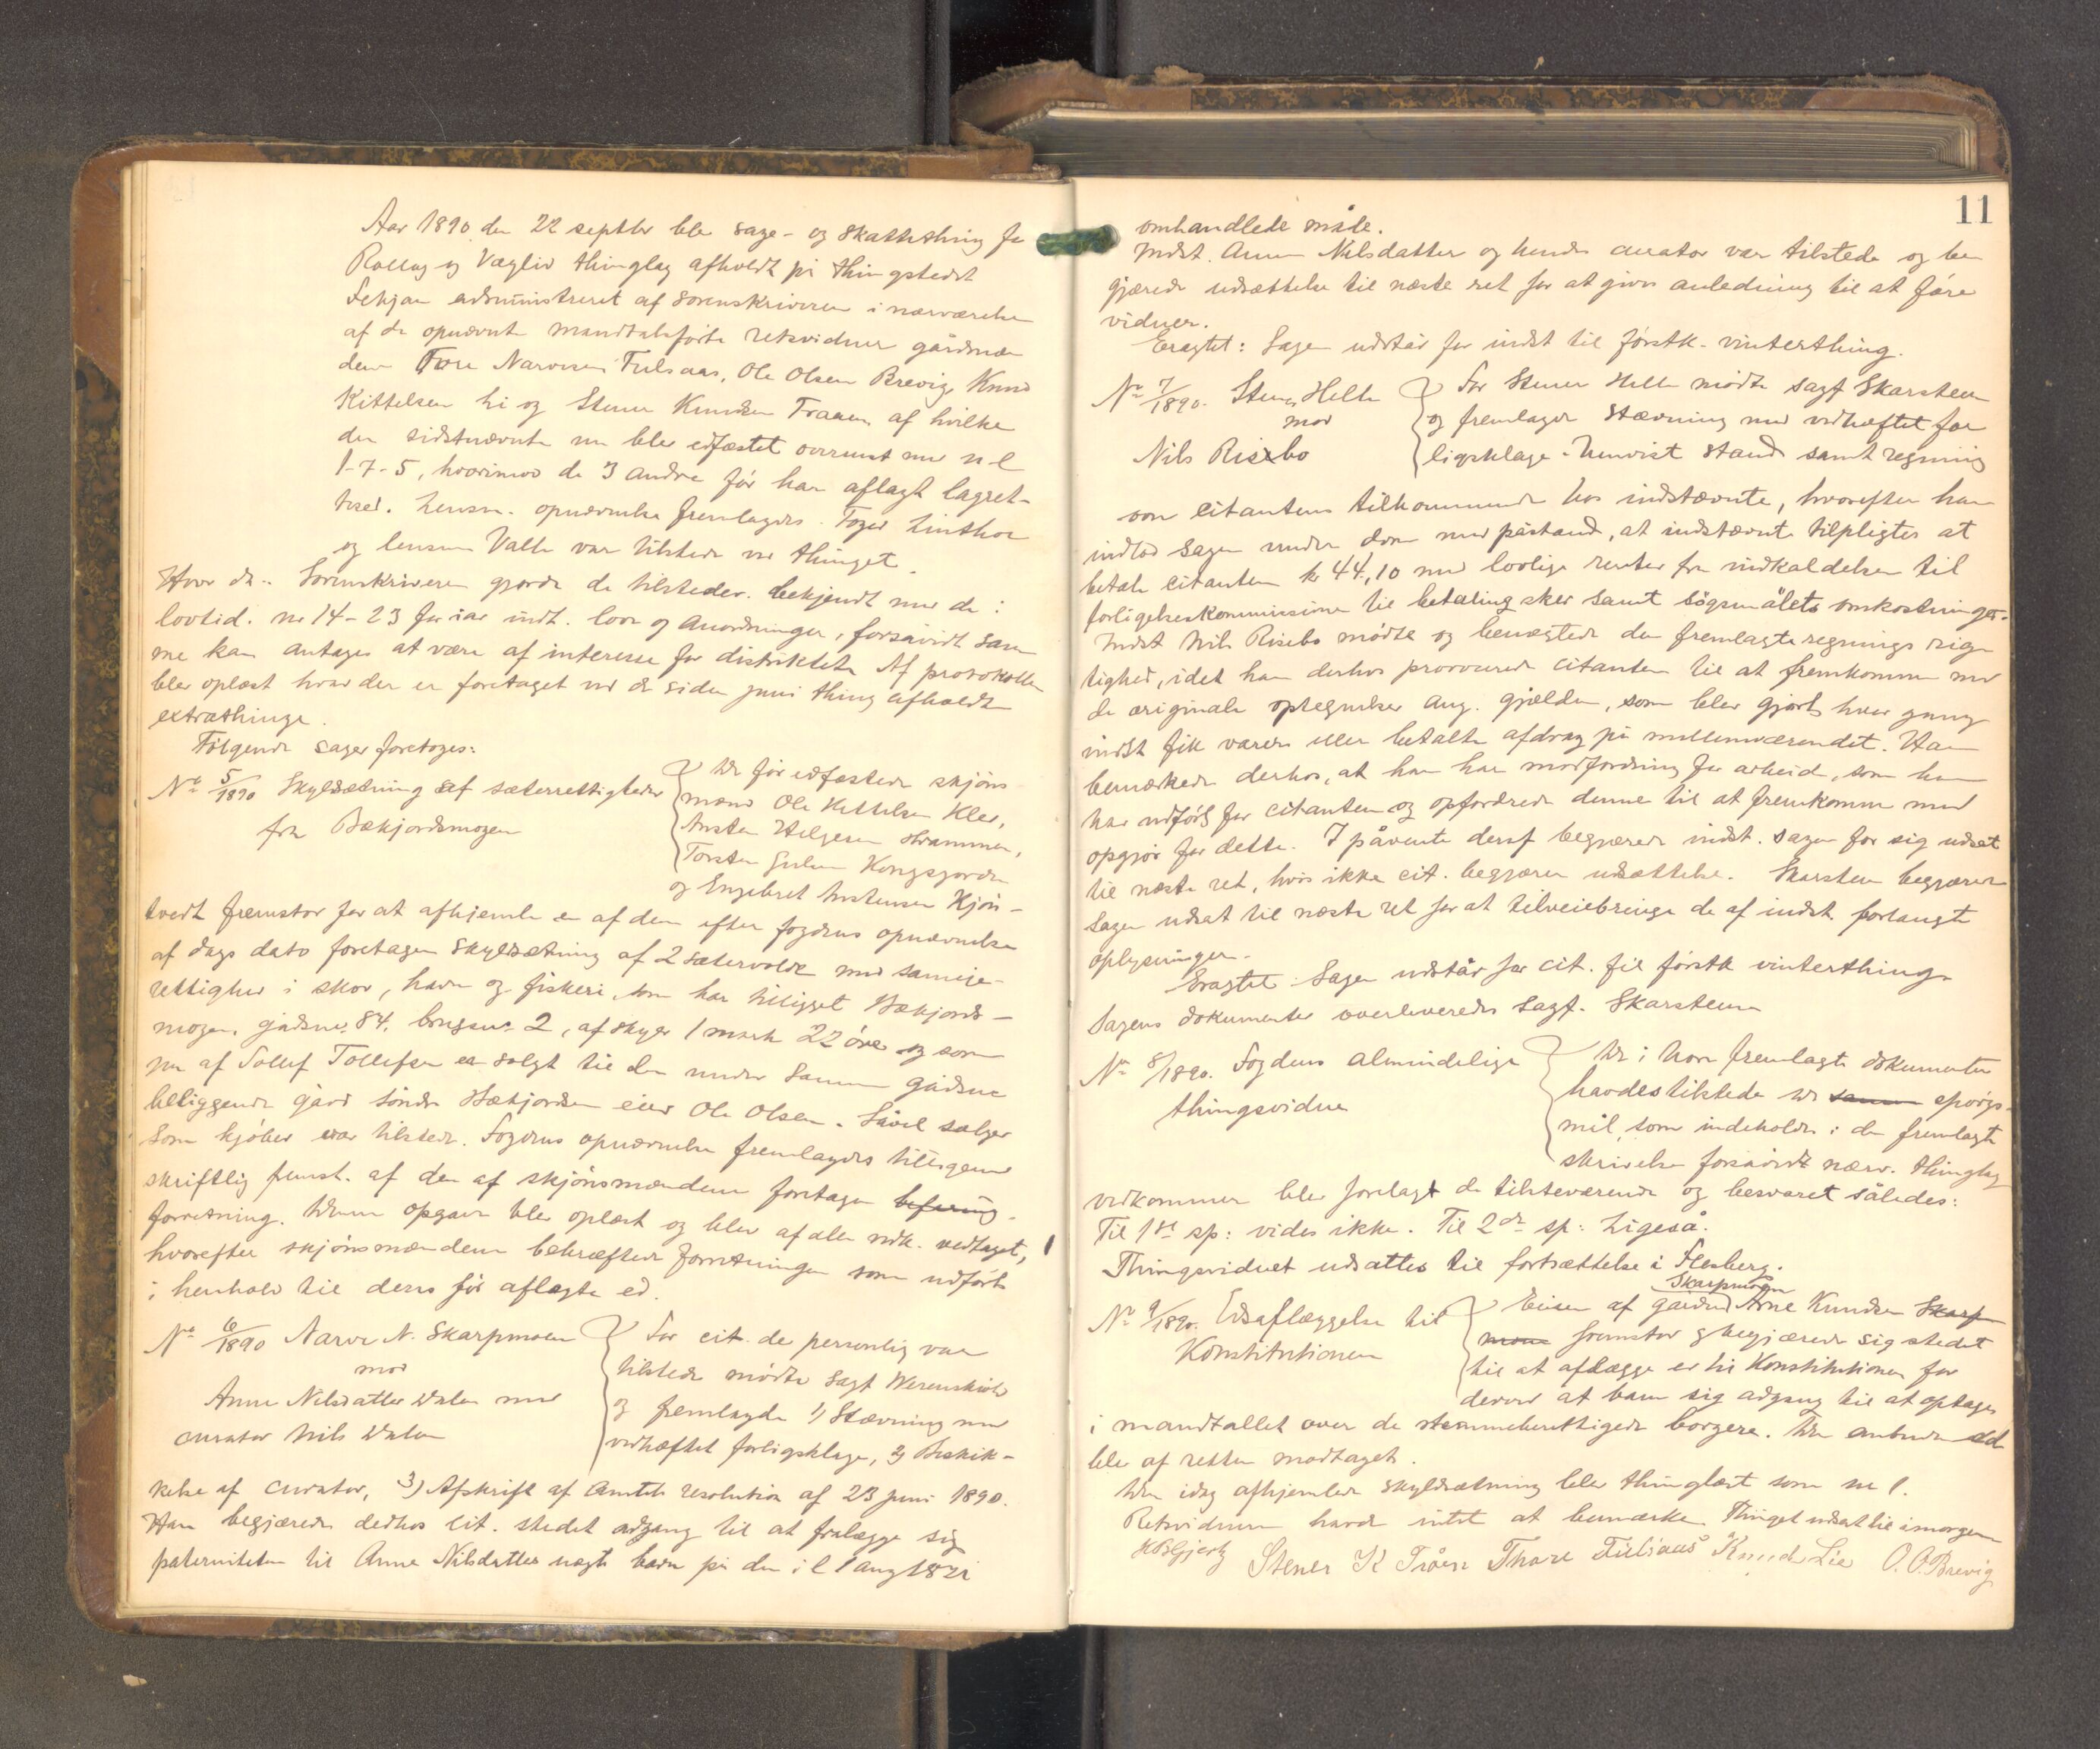 Aar 1890 den 22 septbr blev sage- og skattething for
Rollag og Væglid thinglag afholdt på thingstedet
Fekjan administreret af sorenskriveren i nærværelse
af de opnævnte mandtalsførte retsvidner gårdmæn
dene Tore Narvesen Fulsaas, Ole Olsen Brevig, Knud
Kittelsen Li og Stener Knudsen Traaen, af hvilke
den sidstnævnte nu blev edfæstet overenst med n l
1-7-5, hvorimod de 3 andre før har aflagt lagret-
tesed. Lensm. opnævnelse fremlagdes. Foged Linthoe
og lensm Valle var tilstede ved thinget.
Hvor da: Sorenskriveren gjorde de tilstedev. bekjendt med de i
lovtid. nr 14-23 for iår indt. love og anordninger, forsåvidt sam
me kan antages at være af interesse for distriktet. Af protokollen
blev oplæst hvad der er foretaget ved de siden juni thing afholdte
extrathinge.
Følgende sager foretoges:
No 5/1890 Skyldsætning af sæterrettigheder
fra Bækjordsmogen
De før edfæstede skjøns
mænd Ole Kittelsen Klev,
Østen Helgesen Strammen,
Torsten Gulsen Kongsjorden
og Engebret Østensen Kjøn-
tvedt fremstod for at afhjemle en af dem efter fogdens opnævnelse
af dags dato foretagen skyldsætning af 2 sætervolde med sameje-
rettighed i skov, havn og fiskeri, som har tilligget Bækjords-
mogen, gårdsnr. 84, brugsnr. 2, af skyld 1 mark 22 øre og som
nu af Tollef Tollefsen er solgt til den under samme gårdsnr
beliggende gård søndre Bækjorden eier Ole Olsen. Såvel sælger
som kjøber var tilstede. Fogdens opnævnelse fremlagdes tilligemed
skriftlig fremst. af den af skjønsmændene foretagen befaring-
forretning. Denne opgave blev oplæst og blev af alle vedk. vedtaget,
hvorefter skjønsmændene bekræftede forretningen som udført
i henhold til deres før aflagte ed.
No 6/1890 Narve N. Skarpmoen
mod
Anne Nilsdatter Dalen med
curator Nils Dalen
For cit. der personlig var
tilstede mødte sagf Werenskiold
og fremlagde 1) Stævning med
vedhæftet forligsklage, 2) Beskik-
kelse af curator, 3) Afskrift af Amtets resolution af 23 juni 1890.
Han begjærede derhos cit. stedet adgang til at fralægge sig
paterniteten til Anne Nilsdatters uægte barn på den i l 1 aug 1821
11
omhandlede måde.
Indst. Anne Nilsdatter og hendes curator var tilstede og be
gjærede udsættelse til næste ret for at gives anledning til at føre
vidner.
Eragtet: Sagen udstår for indst til førstk. vinterthing.
No 7/1890. Stener Helle
mod
Nils Risebo
For Stener Helle mødte sagf Skarsteen
og fremlagde Stævning med vedhæftet for
ligsklage-henvist stand samt regning
over citantens tilkommende hos indstævnte, hvorefter han
indlod sagen under dom med påstand, at indstævnte tilpligtes at
betale citanten kr 44,10 med lovlige renter fra indkaldelsen til
forligelseskommissionen til betaling sker samt søgsmålets omkostninger.
Indst Nils Risebo mødte og benægtede den fremlagte regnings rig
tighed, idet han derhos provocerede citanten til at fremkomme med
de originale optegnelser ang. gjælden, som blev gjort hver gang
indst fik varer eller betalte afdrag på mellemværendet. Han
bemærkede derhos, at han har modfordring for arbeid, som han
har udført for citanten og opfordrede denne til at fremkomme med
opgjør for dette. I påvente deraf begjærede indst. sagen for sig udsat
til næste ret, hvis ikke cit. begjærer udsættelse. Skarsteen begjærede
sagen udsat til næste ret for at tilveiebringe de af indst. forlangte
oplysninger.
Eragtet: Sagen udstår for cit. til førstk vinterthing.
Sagens dokumenter overleveredes sagf. Skarsteen
No 8/1890. Fogdens almindelige
thingsvidne
De i den fremlagte dokumenter
havdes tilstede de samme spørgs-
mål, som indeholdes i de fremlagte
skrivelse forsåvidt nærv. thinglag
vedkommer blev forelagt de tilstedeværende og besvaret således:
Til 1ste sp: vides ikke. Til 2det sp: Ligeså.
Thingsvidnet udsattes til fortsættelse i Flesberg.
No 9/1890. Edsaflæggelse til
Konstitutionen
Eieren af gården Skarpmoen Arne Knudsen Skarp
moen fremstod og begjærede sig stedet
til at aflægge ed til Konstitutionen for
derved at bane sig adgang til at optages
i mandtallet over de stemmeberettigede borgere. Den anbudne ed
blev af retten modtaget.
Den idag afhjemlede skyldsætning blev thinglæst som no 1.
Retsvidnene havde intet at bemærke. Thinget udsat til imorgen
Stener K Tråen Thore Fulsaas Knud Lie O. O. Brevig